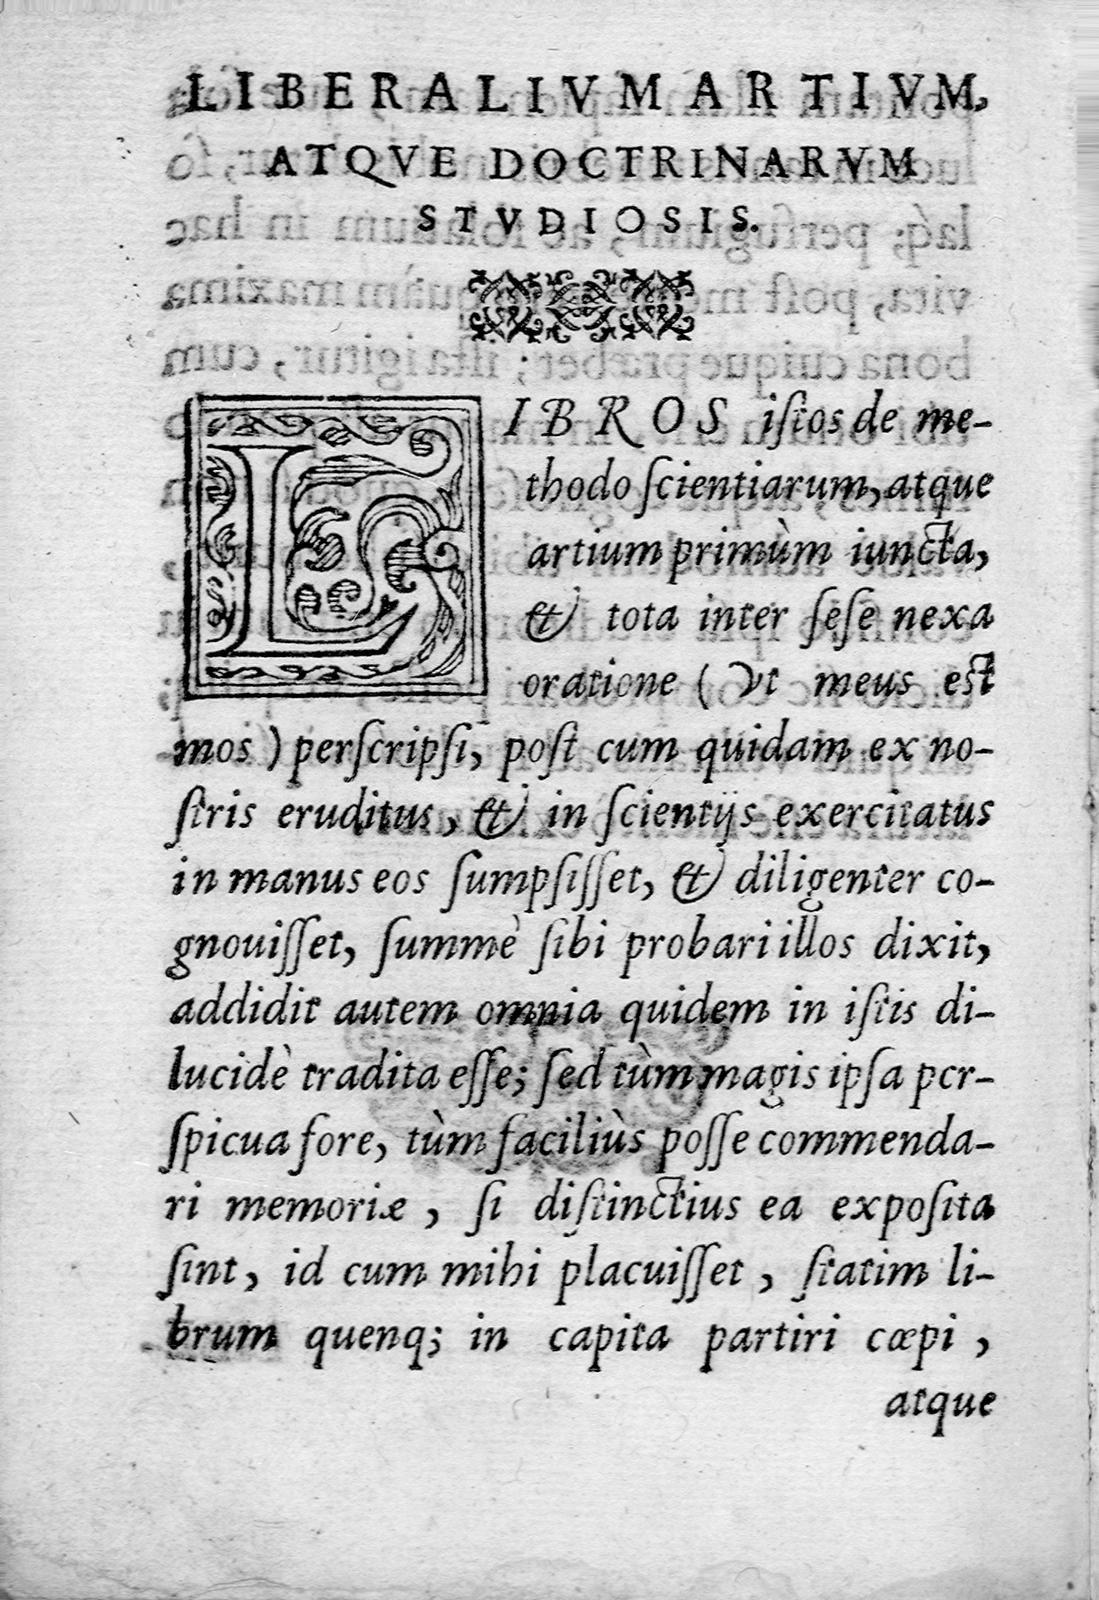 LIBERALIVM ARTIVM,
ATQVE DOCTRINARVM
STVDIOSIS.
LIBROS iſtos de me-
thodo ſcientiarum, atque
artium primùm iuncta,
& tota inter ſeſe nexa
oratione ( vt meus est
mos ) perſcripſi, poſt cum quidam ex no-
ſtris eruditus, & in ſcientijs exercitatus
in manus eos ſumpſiſſet, & diligenter co-
gnouiſſet, ſummè ſibi probari illos dixit,
addidit autem omnia quidem in iſtis di-
lucidè tradita eſſe; ſed tùm magis ipſa per-
ſpicua fore, tùm faciliùs poſſe commenda-
ri memoriæ, ſi diſtinctius ea expoſita
ſint, id cum mihi placuiſſet, ſtatim li-
brum quenq; in capita partiri cœpi,
atque